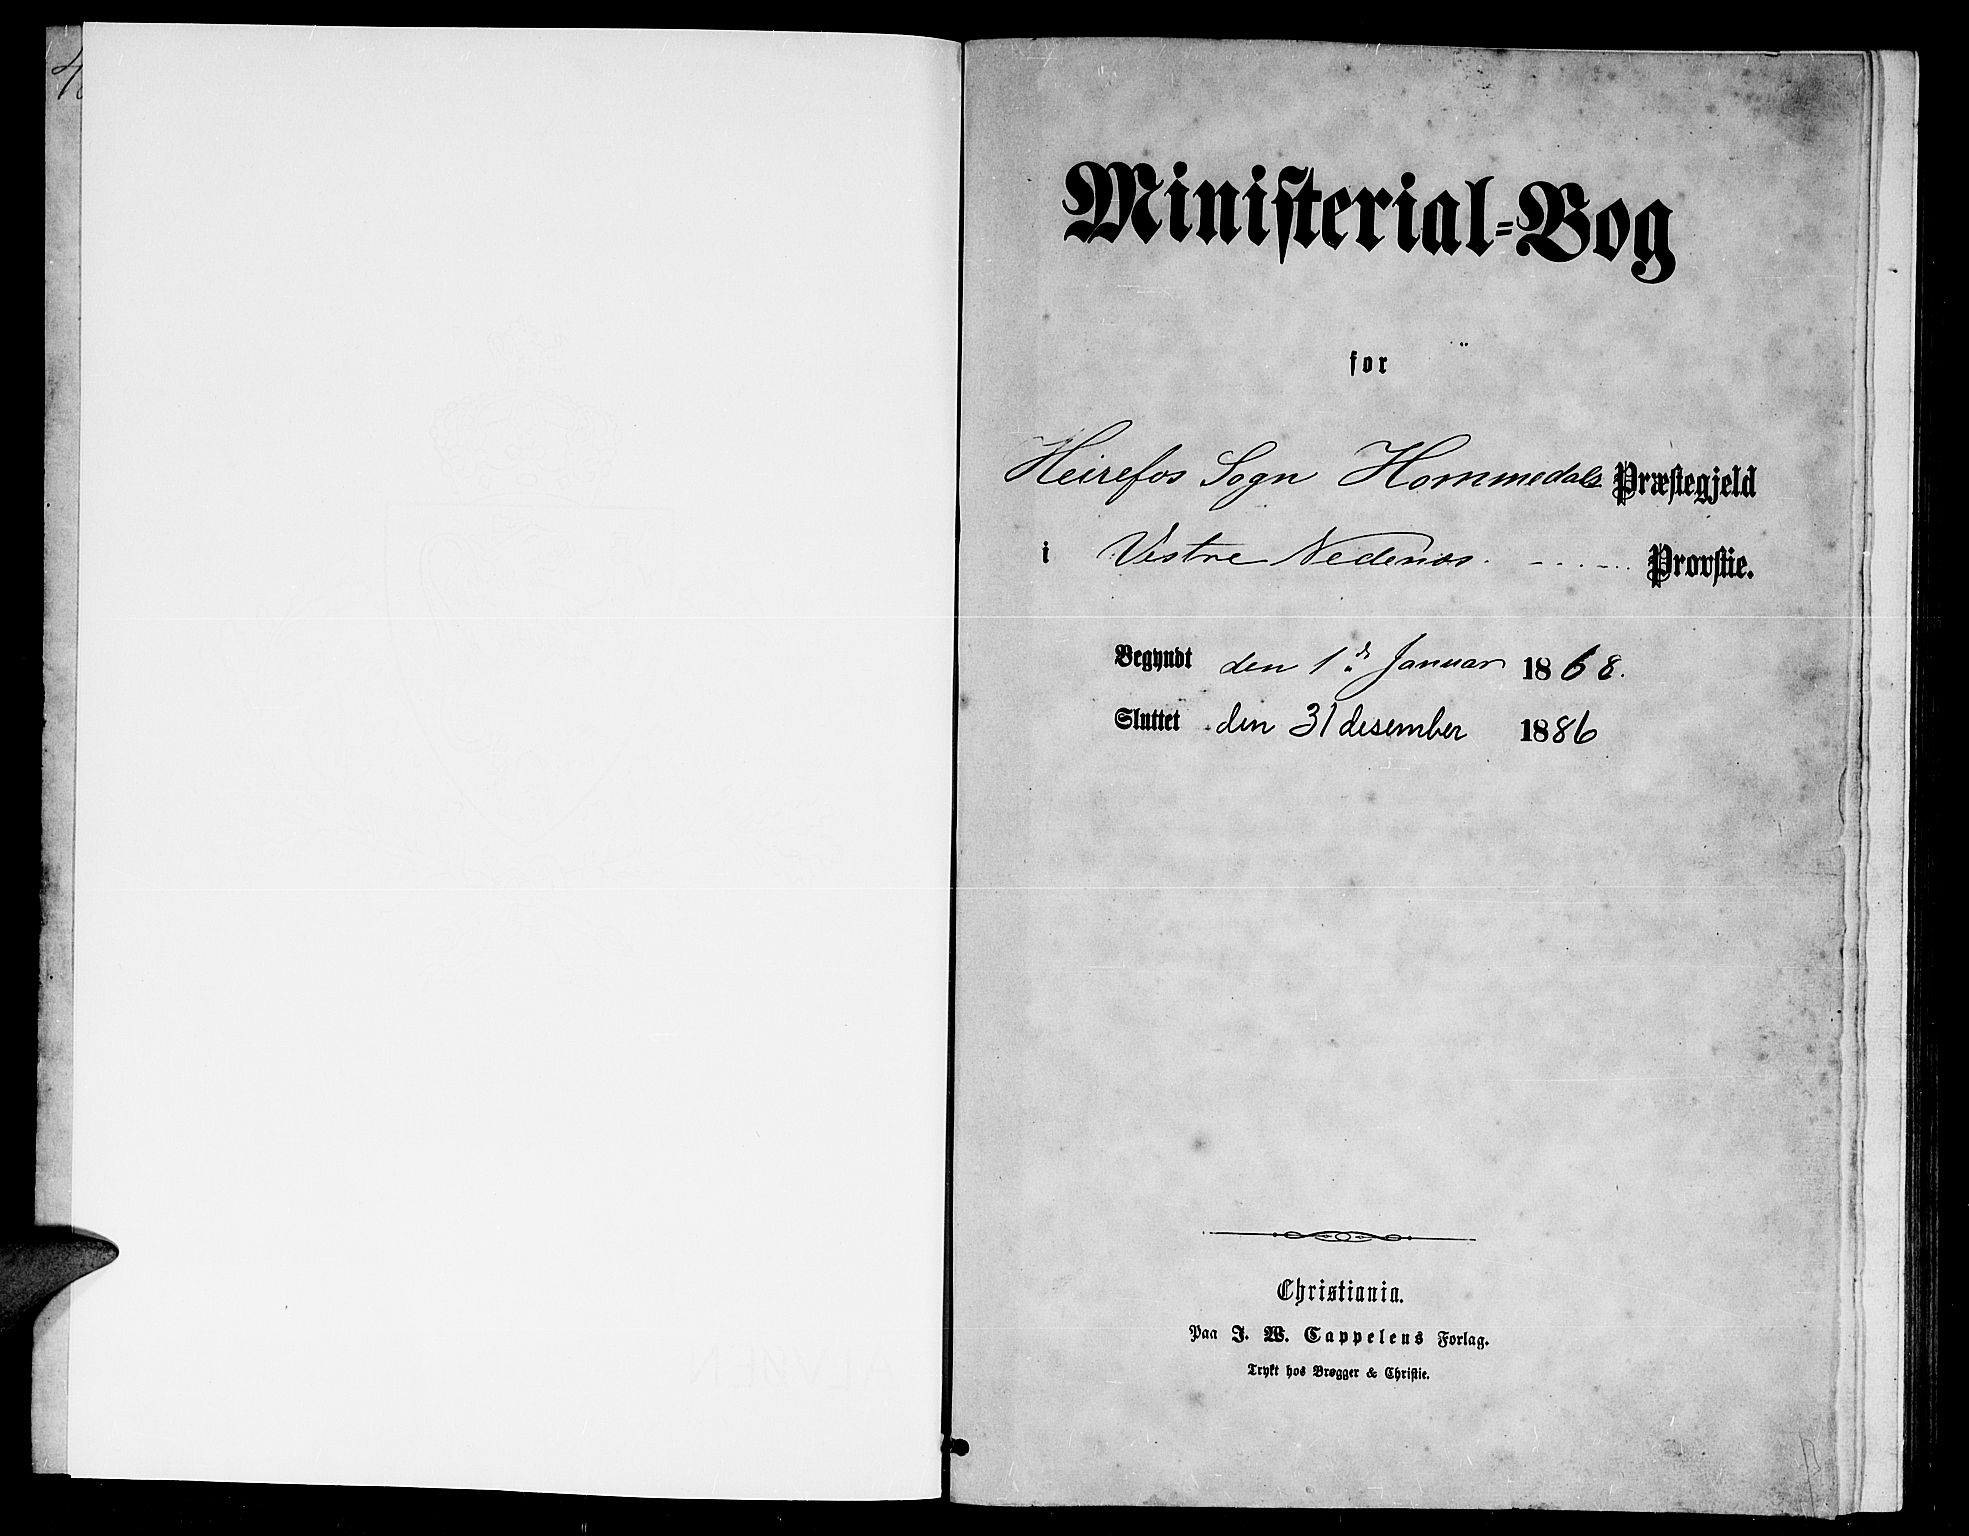 Ministerial-Bog
for
Heirefos Sogn Hommedals Præstegjeld
i Vestre Nedenæs Provstie.
Begyndt den 1.ste Januar 1868.
Sluttet den 31 desember 1886
Christiania.
Paa J. W. Cappelens Forlag.
Trykt hos Brøgger & Christie.
ALVØEN